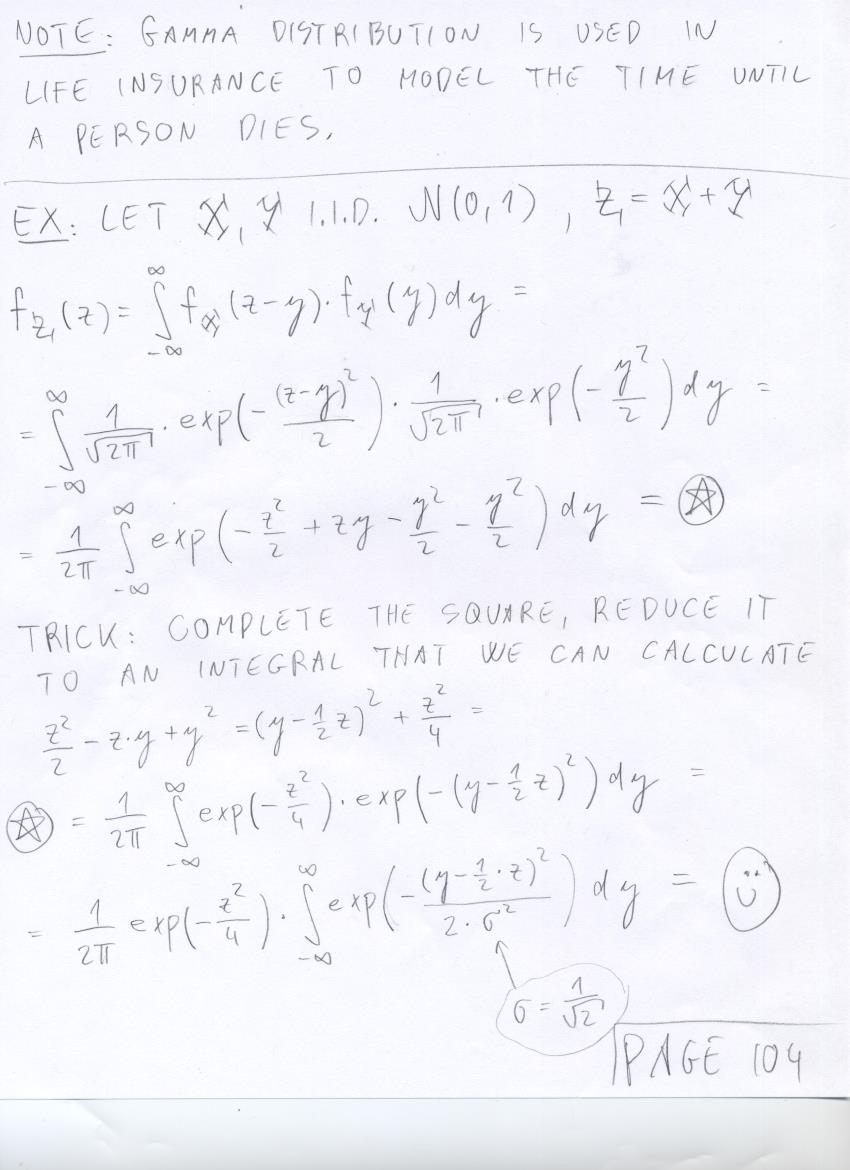 NOTE: GAMMA DISTRIBUTION IS USED IN
LIFE INSURANCE TO MODEL THE TIME UNTIL
A PERSON DIES.
EX: LET X, Y I.I.D. N(0,1), Z = X + Y
f_Z(z) = ∫_{-∞}^{∞} f_X(z-y)·f_Y(y) dy =
= ∫_{-∞}^{∞} 1/√(2π) · exp(-(z-y)²/2) · 1/√(2π) · exp(-y²/2) dy =
= 1/(2π) ∫_{-∞}^{∞} exp(-z²/2 + zy - y²/2 - y²/2) dy = ☆
TRICK: COMPLETE THE SQUARE, REDUCE IT
TO AN INTEGRAL THAT WE CAN CALCULATE
z²/2 - z·y + y² = (y - 1/2 z)² + z²/4 =
☆ = 1/(2π) ∫_{-∞}^{∞} exp(-z²/4) · exp(-(y - 1/2 z)²) dy =
= 1/(2π) exp(-z²/4) · ∫_{-∞}^{∞} exp(-(y - 1/2 · z)²/(2·σ²)) dy = ☺
σ = 1/√2
PAGE 104